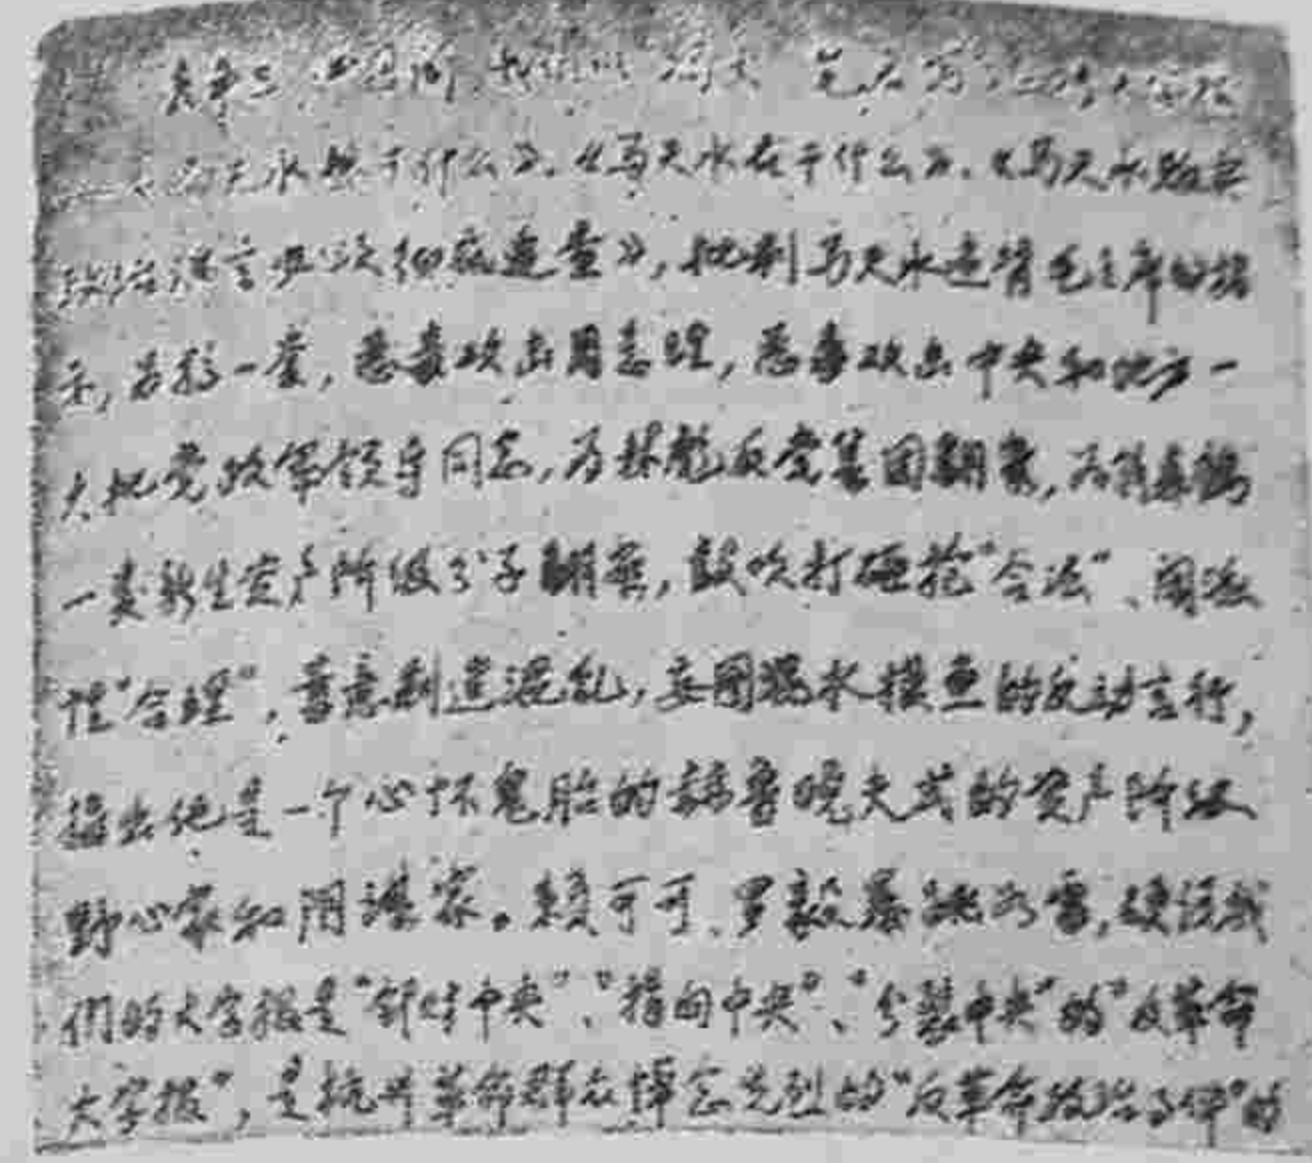 天水想干什么》、《马天水在干什么》、《马天水贩卖
政治谣言必须彻底追查》，批判马天水违背毛主席的指
示，另搞一套，恶毒攻击周总理，恶毒攻击中央和地方一
大批党政军领导同志，为林彪反党集团翻案，为
一类新生资产阶级分子翻案，鼓吹打砸抢“合法”、闹派
性“合理”，蓄意制造混乱，妄图混水摸鱼的反动言行，
指出他是一个心怀鬼胎的赫鲁晓夫式的资产阶级
野心家和阴谋家。赖可可、罗毅暴跳如雷，硬说我
们的大字报是“针对中央”、“指向中央”、“分裂中央”的“反革命
大字报”，是杭州革命群众悼念先烈的“反革命政治事件”的